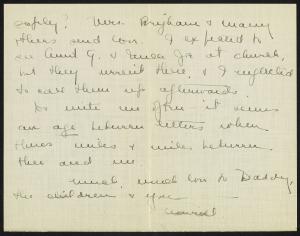 safely? Mrs. Brigham & many
others send love. I expected to
see Aunt G. & Uncle Joe at church,
but they weren't there, & I neglected
to call them up afterwards.
Do write me often it seems
an age between letters when
there's miles & miles between
thee and me.
Much, much love to Daddy,
the children & you